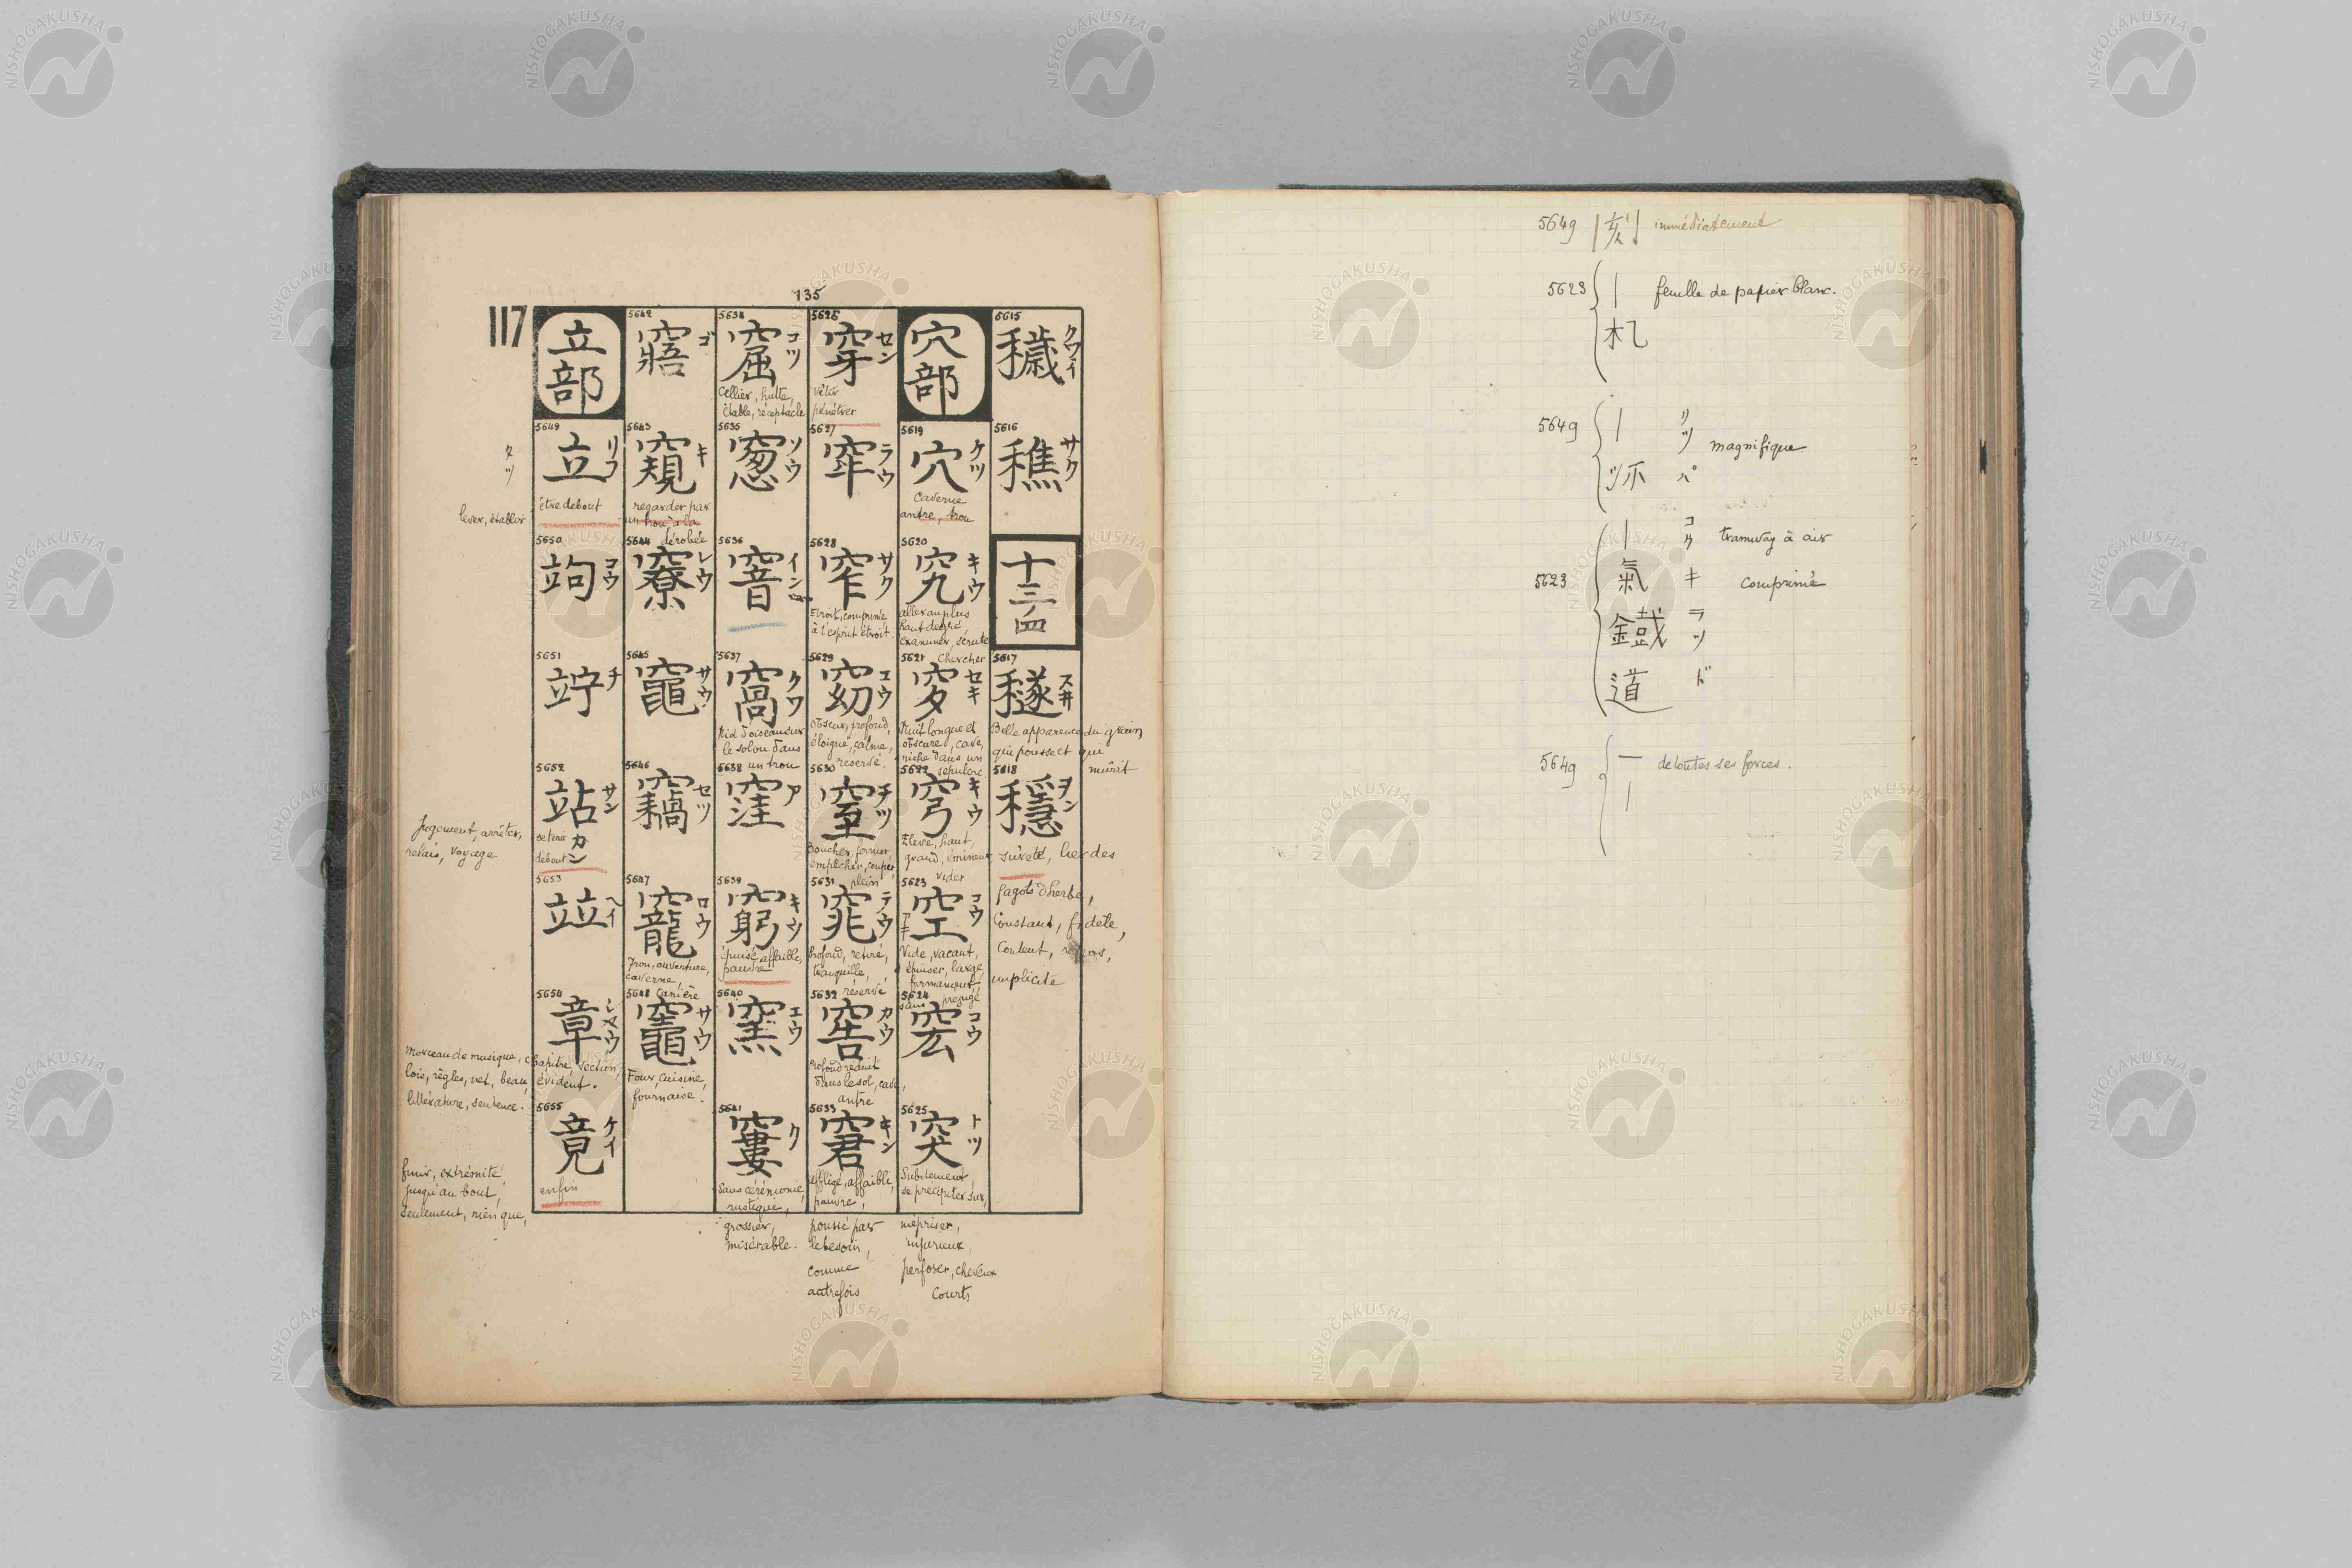 135
117
5615
穢
クワイ
5616
穛
サク
十三画
5617
穟
スヰ
Belle apparence du grain
qui pousse et qui
mûrit
5618
穩
ヲン
sûreté, lier des
fagots d'herbe,
Constant, fidèle,
Content,
implicite
穴部
5619
穴
ケツ
Caverne
antre, trou
5620
究
キウ
aller au plus
haut degré,
examiner, scruter
chercher
5621
穸
セキ
Nuit longue et
obscure, cave,
niche dans un
sépulcre
5622
穹
キウ
Elevé, haut,
grand, éminent
vider
5623
空
コウ
Vide, vacant,
épuiser, large,
firmament
sans préjugé
5624
宖
コウ
5625
突
トツ
Subitement,
se précipiter sur,
mépriser,
injurieux,
perforer, cheveux
courts
5626
穿
セン
Vêtir
pénétrer
5627
窂
ラウ
5628
窄
サク
Etroit, comprimé
à l'esprit étroit.
5629
窈
エウ
obscur, profond,
éloigné, calme,
réservé.
5630
窒
チツ
Boucher, fermer,
empêcher, couper,
plein
5631
窕
テウ
Profond, retiré,
tranquille,
réservé
5632
窖
カウ
Profond réduit
dans le sol, cave,
antre
5633
窘
キン
affligé, affaibli,
pauvre,
poussé par
le besoin,
comme
autrefois
5634
窟
コツ
Cellier, hutte,
étable, réceptacle
5635
窻
ソウ
5636
窨
イン
5637
窩
クワ
Nid d'oiseau sur
le sol ou dans
un trou
5638
窪
ア
5639
窮
キウ
épuisé, affaibli,
pauvre
5640
窯
エウ
5641
窶
ク
Sans cérémonie,
rustique,
grossier,
misérable.
5642
寤
ゴ
5643
窺
キ
regarder par
un trou à la
dérobée
5644
竂
レウ
5645
竃
サウ
5646
竊
セツ
5647
竉
ロウ
Trou, ouverture,
caverne,
tanière
5648
竈
サウ
Four, cuisine,
fournaise.
立部
5649
立
リフ
タツ
être debout
lever, établir
5650
竘
コウ
5651
竚
チ
5652
站
サン
カン
se tenir
debout
Jugement, arrêter,
relais, voyage
5653
竝
ヘイ
5654
章
シヤウ
Morceau de musique, chapitre, section,
lois, règles, net, beau, évident.
littérature, sentence.
5655
竟
ケイ
enfin
finir, extrémité,
jusqu'au bout,
seulement, rien que,
5649 | 刻 | immédiatement
5623 | feuille de papier blanc.
札
5649 | リツ magnifique
派 パ
5623 | コウ tramway à air
氣 キ comprimé
鐡 テツ
道 ド
5649 一 de toutes ses forces.
|